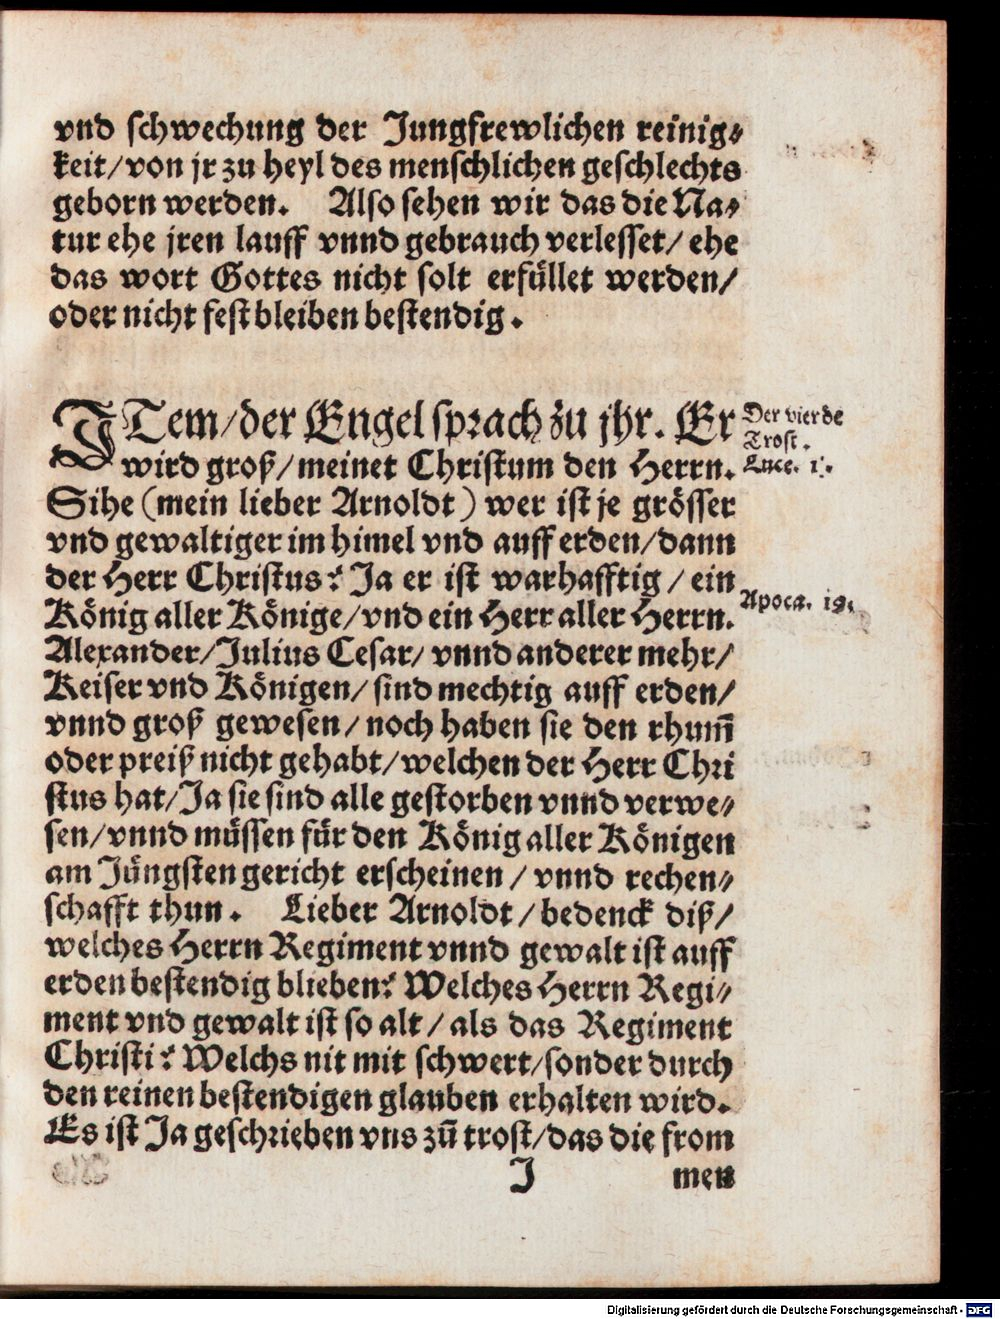 vnd schwechung der Jungfrewlichen reinig⸗
keit/von jr zu heyl des menschlichen geschlechts
geborn werden. Also sehen wir das die Na⸗
tur ehe jren lauff vnnd gebrauch verlesset/ ehe
das wort Gottes nicht solt erfüllet werden/
oder nicht fest bleiben bestendig.
ITem/der Engel sprach zu jhr. Er
wird groß/meinet Christum den Herrn.
Sihe (mein lieber Arnoldt) wer ist je grösser
vnd gewaltiger im himel vnd auff erden/dann
der Herr Christus? Ja er ist warhafftig/ein
König aller Könige/vnd ein Herr aller Herrn.
Alexander/Julius Cesar/ vnnd anderer mehr/
Keiser vnd Königen/sind mechtig auff erden/
vnnd groß gewesen/noch haben sie den rhum̃
oder preiß nicht gehabt/welchen der Herr Chri
stus hat/Ja sie sind alle gestorben vnnd verwe⸗
sen/vnnd müssen für den König aller Königen
am Jüngsten gericht erscheinen/vnnd rechen⸗
schafft thun. Lieber Arnoldt/bedenck diß/
welches Herrn Regiment vnnd gewalt ist auff
erden bestendig blieben? Welches Herrn Regi⸗
ment vnd gewalt ist so alt/als das Regiment
Christi? Welchs nit mit schwert/sonder durch
den reinen bestendigen glauben erhalten wird.
Es ist Ja geschrieben vns zū trost/das die from
J men
Der vierde
Trost.
Luce. 1.
Apoca. 19.
Digitalisierung gefördert durch die Deutsche Forschungsgemeinschaft - DFG